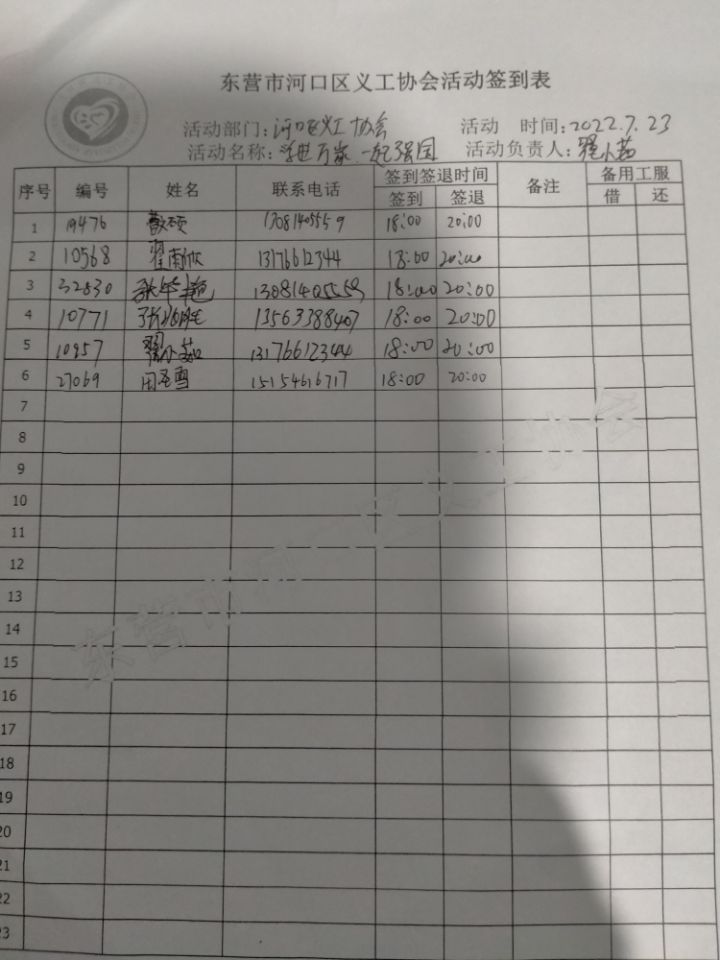 东营市河口区义工协会活动签到表
活动部门:河口区义工协会 活动 时间:2022.7.23
活动名称: 万家 一起强国 活动负责人:翟小茹
序号 编号 姓名 联系电话 签到签退时间 备注 备用工服
签到 签退 借 还
1 19476 13081405559 18:00 20:00
2 10568 翟南欣 13176612344 18:00 20:00
3 32830 张华艳 13081405559 18:00 20:00
4 10771 13563388407 18:00 20:00
5 10957 翟小茹 13176612344 18:00 20:00
6 27069 田圣雪 15154616717 18:00 20:00
7
8
9
10
11
12
13
14
15
16
17
18
19
20
21
22
23
东营市河口区义工协会